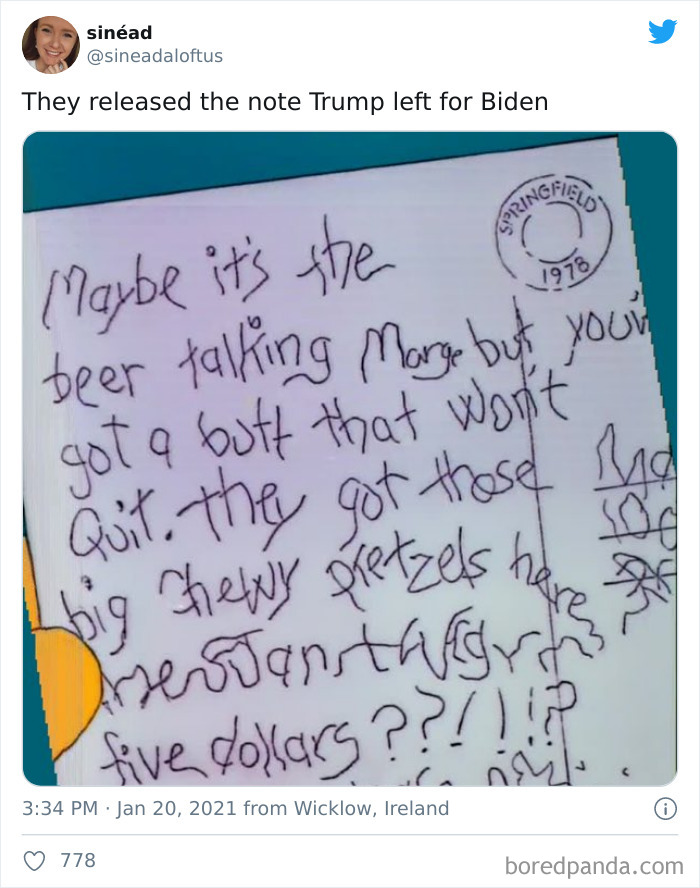 sinéad
@sineadaloftus
They released the note Trump left for Biden
SPRINGFIELD
1978
Maybe it's the
beer talking Marge but you'v
got a butt that won't
Quit. they got those
big chewy pretzels here
five dollars??!!!?
3:34 PM · Jan 20, 2021 from Wicklow, Ireland
778
boredpanda.com